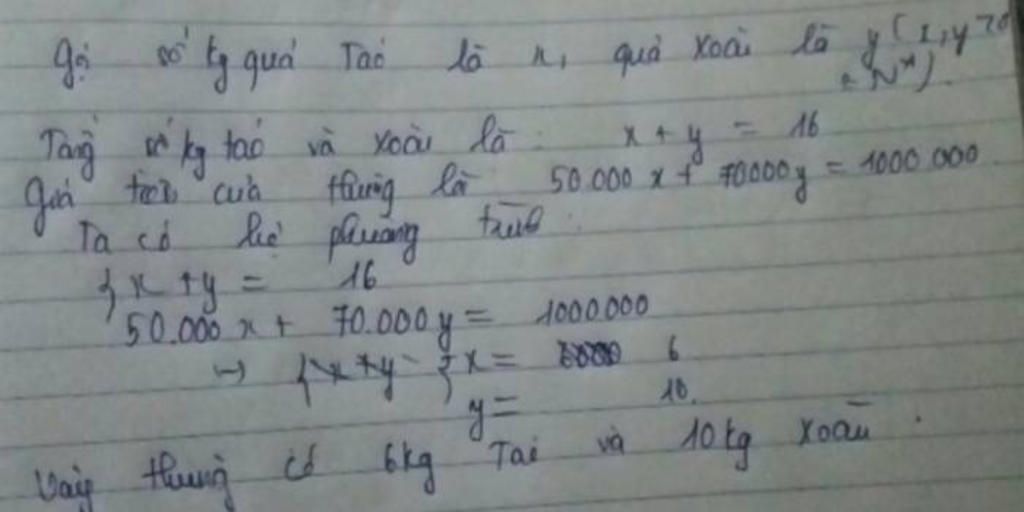 Gọi số kg quả Táo là x, quả xoài là y (x, y > 0
∈ N*).
Tổng số kg táo và xoài là: x + y = 16
Giá tiền của thùng là 50.000 x + 70000y = 1000.000
Ta có hệ phương trình:
{ x + y = 16
50.000 x + 70.000 y = 1000.000
→ { x + y { x = 6
y = 10.
Vậy thùng có 6kg Táo và 10kg xoài.